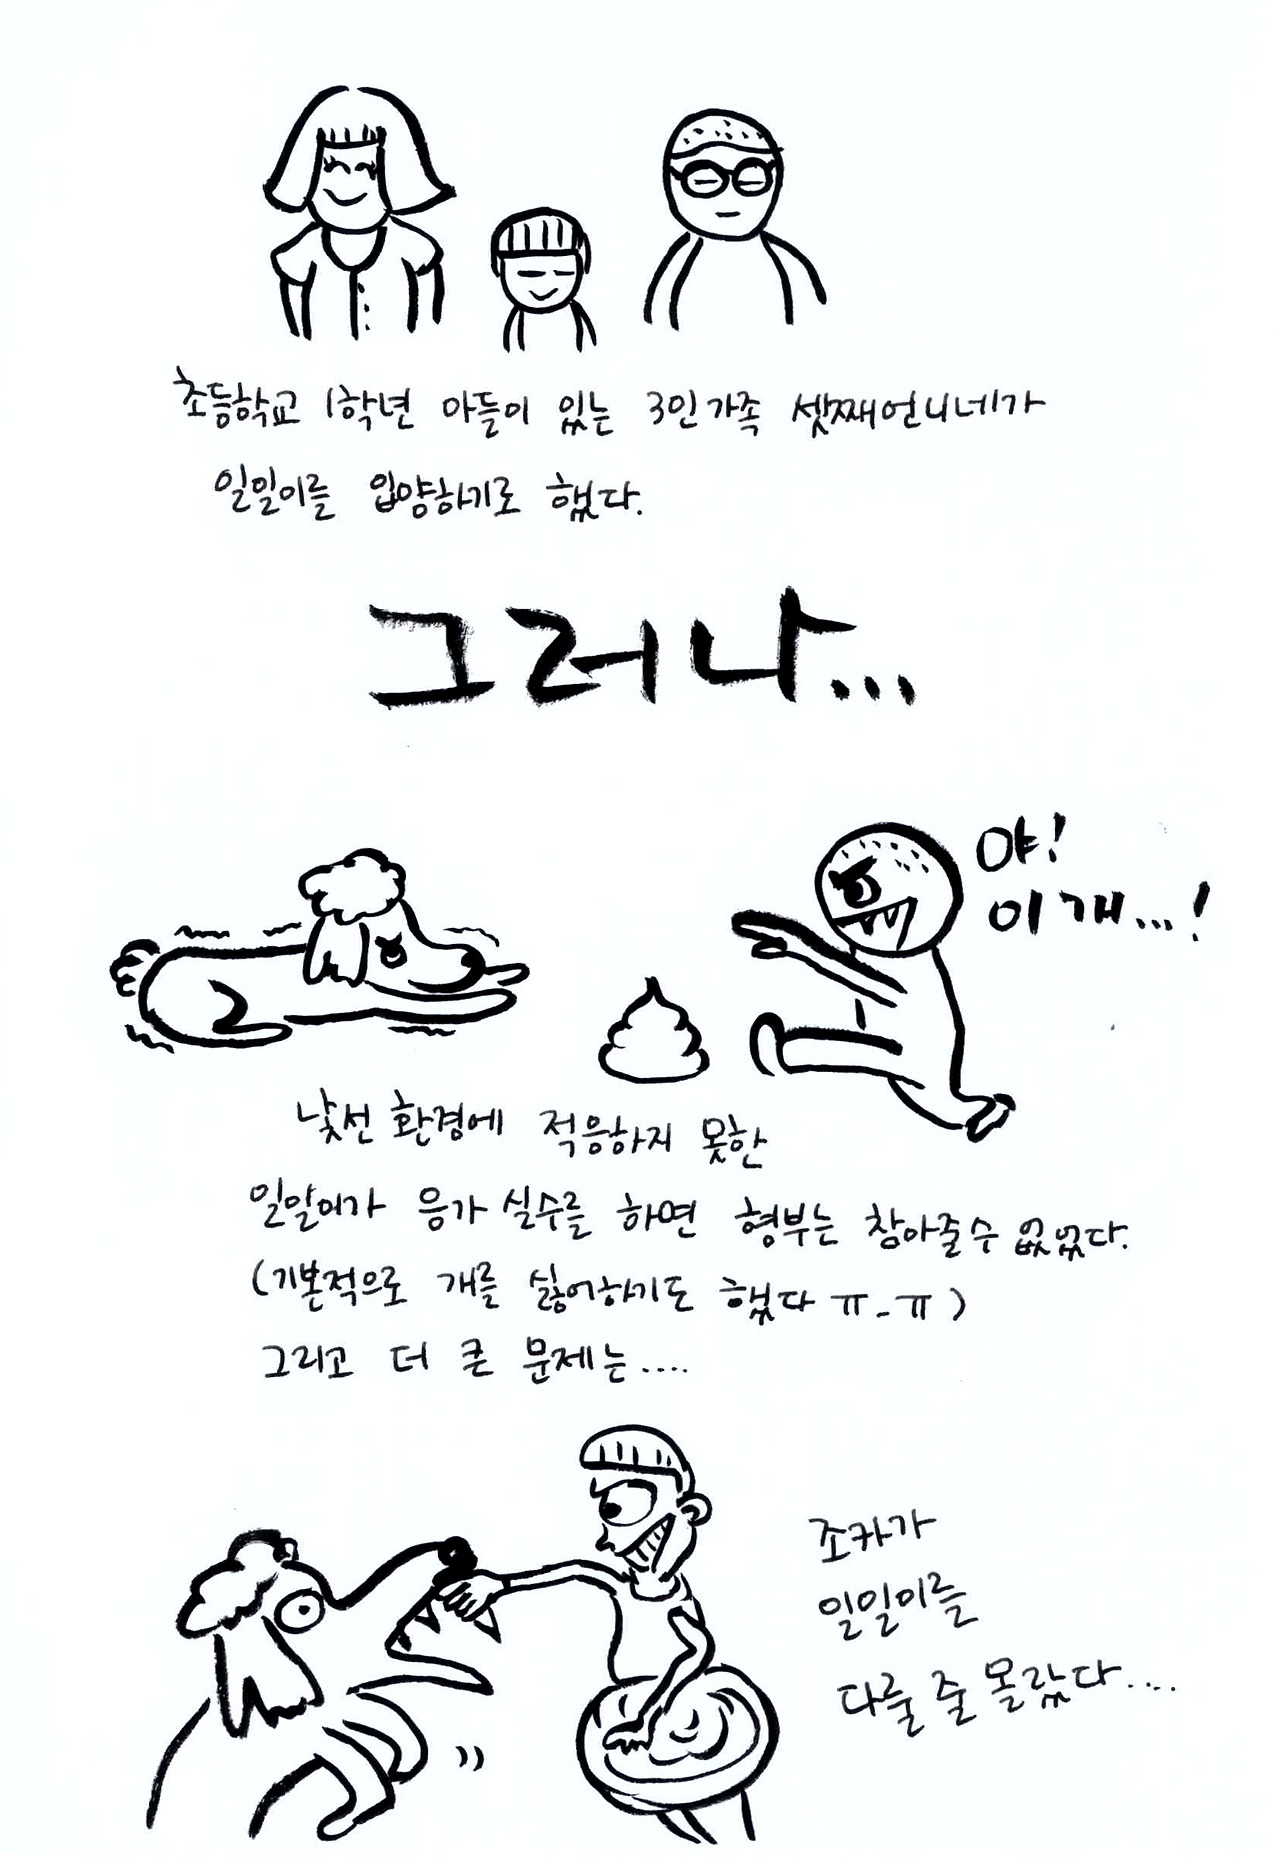 초등학교 1학년 아들이 있는 3인가족 셋째언니네가
일일이를 입양하기로 했다.
그러나...
야!
이 개...!
낯선 환경에 적응하지 못한
일일이가 응가 실수를 하면 형부는 참아줄수 없었다.
(기본적으로 개를 싫어하기도 했다 ㅠ_ㅠ)
그리고 더 큰 문제는....
조카가
일일이를
다룰 줄 몰랐다....